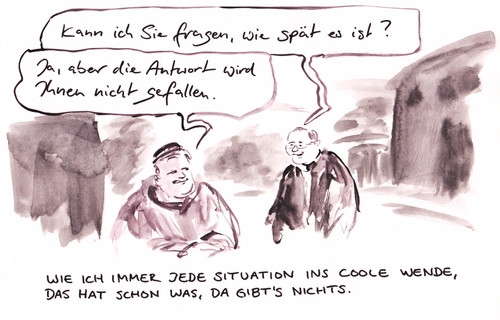 Kann ich Sie fragen, wie spät es ist?
Ja, aber die Antwort wird
Ihnen nicht gefallen.
WIE ICH IMMER JEDE SITUATION INS COOLE WENDE,
DAS HAT SCHON WAS, DA GIBT'S NICHTS.